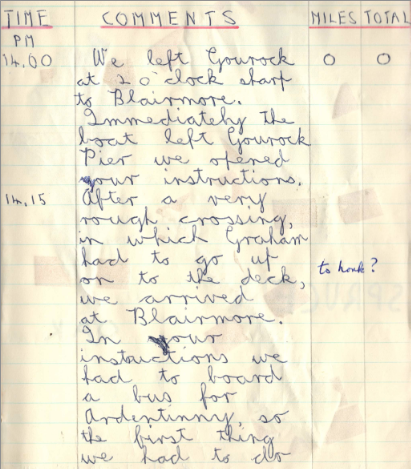 TIME COMMENTS MILES TOTAL
PM
14.00 We left Gourock 0 0
at 2 o'clock sharp
to Blairmore.
Immediately the
boat left Gourock
Pier we opened
your instructions.
14.15 After a very
rough crossing,
in which Graham
had to go up
on to the deck, to honk?
we arrived
at Blairmore.
In your
instructions we
had to board
a bus for
Ardentinny, so
the first thing
we had to do